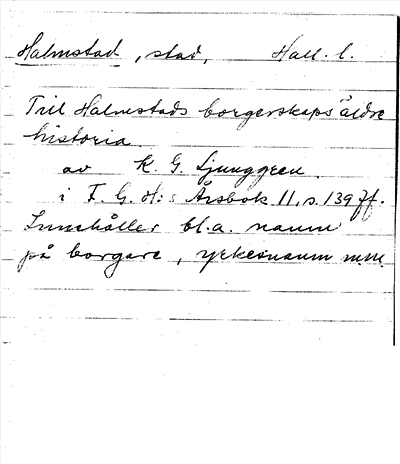 Halmstad, stad, Hall. l.
Till Halmstads borgerskaps äldre
historia
av K. G. Ljunggren.
i F. G. H:s Årsbok 11, s. 139 ff.
Innehåller bl.a. namn
på borgare, yrkesnamn m.m.